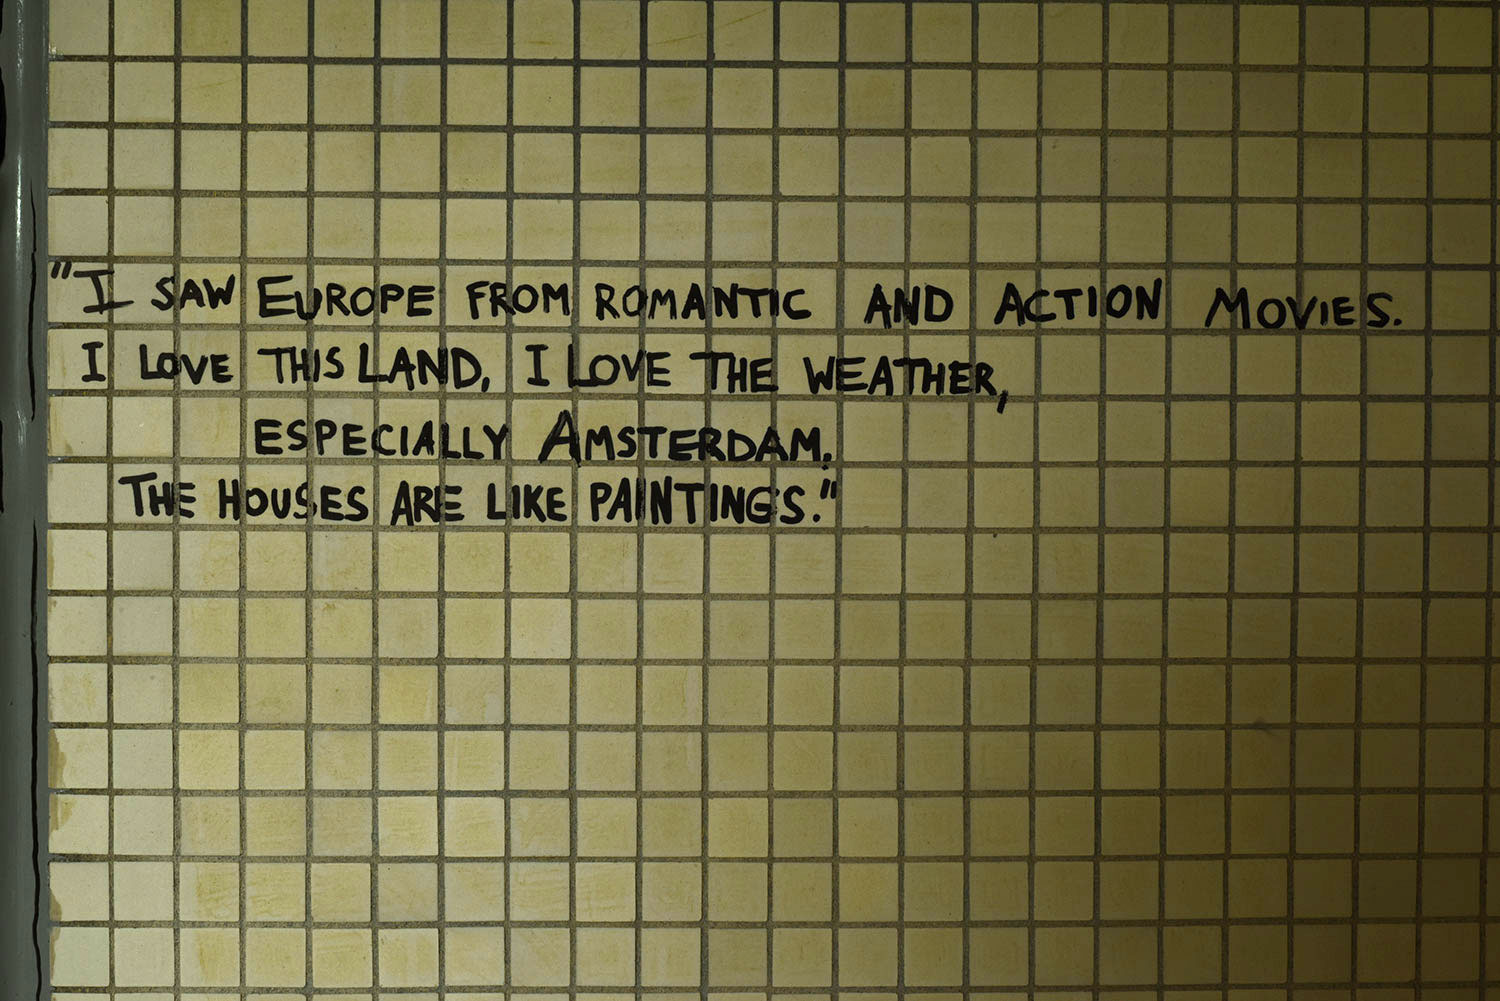 "I SAW EUROPE FROM ROMANTIC AND ACTION MOVIES.
I LOVE THIS LAND, I LOVE THE WEATHER,
ESPECIALLY AMSTERDAM.
THE HOUSES ARE LIKE PAINTINGS."